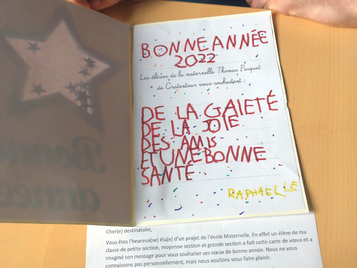 BONNE ANNÉE
2022
Les élèves de la maternelle Thomas Pesquet
de Gratentour vous souhaitent :
DE LA GAIETÉ
DE LA JOIE
DES AMIS
ET UNE BONNE
SANTÉ
RAPHAELLE
Cher(e) destinataire,
Vous êtes l'heureux(se) élu(e) d'un projet de l'école Maternelle. En effet un élève de ma
classe de petite section, moyenne section et grande section a fait cette carte de vœux et a
imaginé son message pour vous souhaiter ses vœux de bonne année. Nous ne vous
connaissons pas personnellement, mais nous voulions vous faire plaisir.